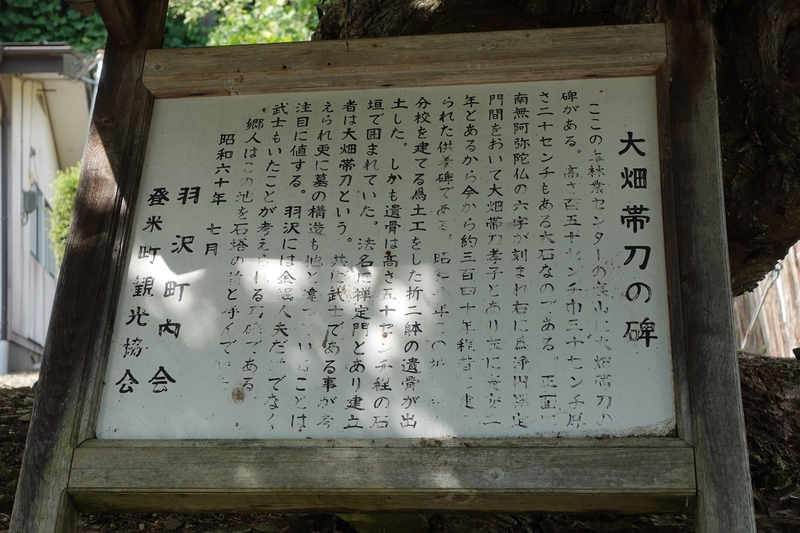 大畑帯刀の碑
ここの 林業センターの裏山に大畑帯刀の
碑がある。高さ百五十センチ巾三十センチ厚
さ二十センチもある大石なのである。正面に
南無阿弥陀仏の六字が刻まれ右に為浄 禅定
門間をおいて大畑帯刀孝子とあり 二
年とあるから今から約三百四十年程昔に建
られた供養碑である。昭和 年この地
分校を建てる為土工をした折二躰の遺骨が出
土した。しかも遺骨は高さ五十センチ程の石
垣で囲まれていた。法名に禅定門とあり建立
者は大畑帯刀という。共に武士である事が考
えられ更に墓の構造も他と違っていることは
注目に値する。羽沢には金掘人夫だけでなく
武士もいたことが考えられる石碑である
郷人はこの地を石塔の と呼んでいる
昭和六十年 七月
羽沢町内会
登米町観光協会